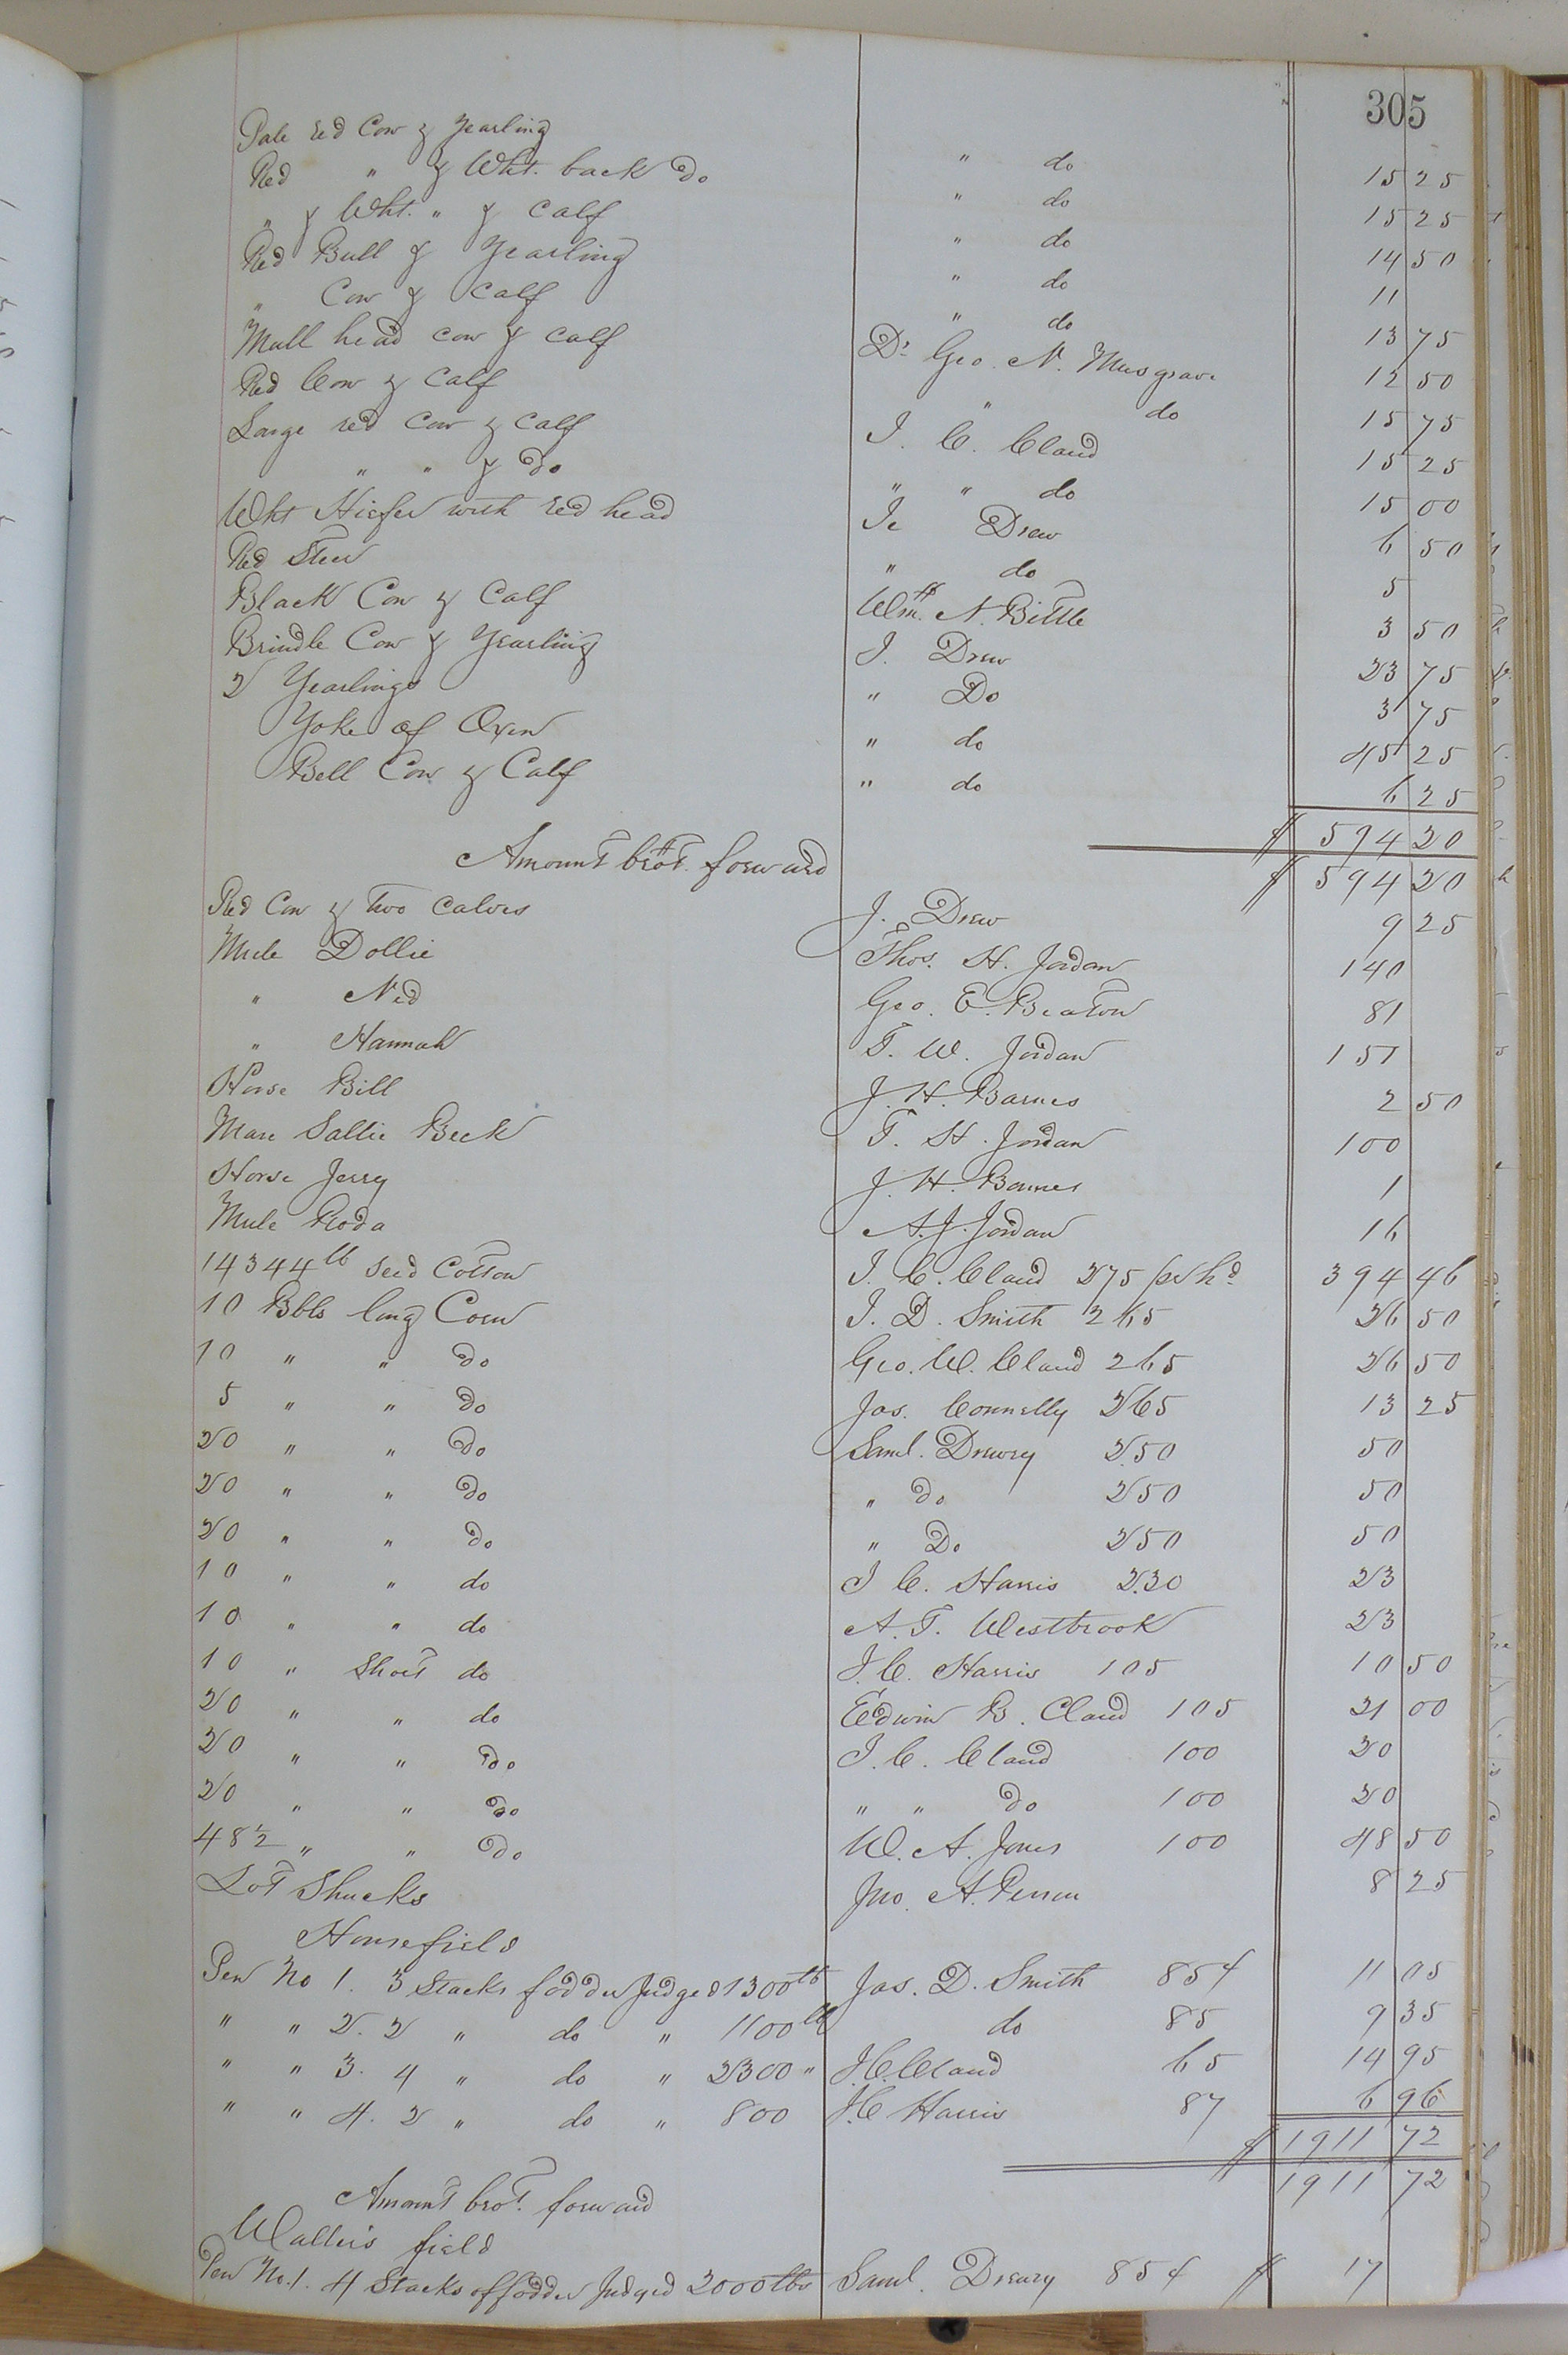 305
Pale red Cow & Yearling " do 15 25
Red " & Wht. back do " do 15 25
" & Wht. " & Calf " do 14 50
Red Bull & Yearling " do 11
" Cow & Calf " do 13 75
Mull head cow & calf Dr Geo. N. Musgrave 12 50
Red Cow & Calf " do 15 75
Large red Cow & Calf J. C. Claud 15 25
" " & do " " do 15 00
Wht Hiefer with red head J. Drew 6 50
Red Steer " do 5
Black Cow & Calf Wm. N. Bittle 3 50
Brindle Cow & Yearling J. Drew 23 75
2 Yearlings " Do 3 75
Yoke of Oxen " do 45 25
Bell Cow & Calf " do 6 25
$ 594 20
Amount brot. forward $ 594 20
Red Cow & two Calves J. Drew 9 25
Mule Dollie Thos. H. Jordan 140
" Ned Geo. E. Beaton 81
" Hannah T. W. Jordan 151
Horse Bill J. H. Barnes 2 50
Mare Sallie Beck T. H. Jordan 100
Horse Jerry J. H. Barnes 1
Mule Roda A. J. Jordan 16
14344 lb Seed Cotton J. C. Claud 275 per hd 394 46
10 Bbls long Corn J. D. Smith 265 26 50
10 " " do Geo. W. Claud 265 26 50
5 " " do Jas. Connelly 265 13 25
20 " " do Saml. Drewry 2.50 50
20 " " do " do 250 50
20 " " do " Do 250 50
10 " " do J C. Harris 2.30 23
10 " " do A. T. Westbrook 23
10 " Short do J. C. Harris 105 10 50
20 " " do Edwin B. Claud 105 21 00
20 " " do J. C. Claud 100 20
20 " " do " " do 100 20
48 1/2 " " do W. A. Jones 100 48 50
Lot Shucks Jno. A. Person 8 25
Housefield
Pen No 1. 3 Stacks fodder Judged 1300 lb Jas. D. Smith 85¢ 11 05
" " 2. 2 " do " 1100 lb do 85 9 35
" " 3. 4 " do " 2300 " J. C. Claud 65 14 95
" " 4. 2 " do " 800 J. C Harris 87 6 96
$ 1911 72
Amount brot. forward 1911 72
Waller's field
Pen No. 1. 4 Stacks of fodder Judged 2000 lbs Saml. Drewry 85¢ $ 17